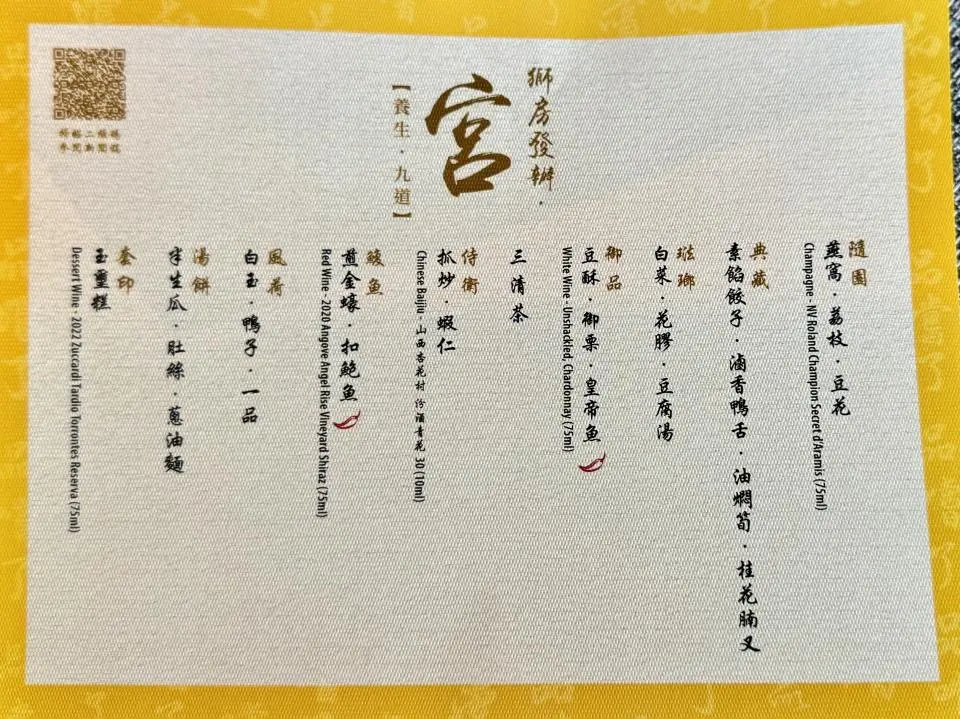 獅房發辦·
宮
【養生·九道】
掃描二維碼
參閱新聞稿
隨園
燕窩·荔枝·豆花
Champagne - NV Roland Champion Secret d'Aramis (75ml)
典藏
素餡餃子·滷香鴨舌·油燜筍·桂花腩叉
琺瑯
白菜·花膠·豆腐湯
御品
豆酥·御栗·皇帝魚
White Wine - Unshackled, Chardonnay (75ml)
三清茶
侍衛
抓炒·蝦仁
Chinese Baijiu - 山西杏花村 汾酒青花 30 (10ml)
鮫魚
煎金蠔·扣鮑魚
Red Wine - 2020 Angove Angel Rise Vineyard Shiraz (75ml)
風荷
白玉·鴨子·一品
湯餅
半生瓜·肚絲·蔥油麵
套印
玉璽糕
Dessert Wine - 2022 Zuccardi Tardio Torrontes Reserva (75ml)